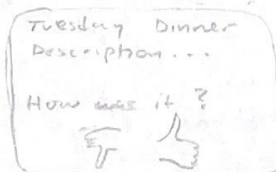 Tuesday Dinner
Description...
How was it?